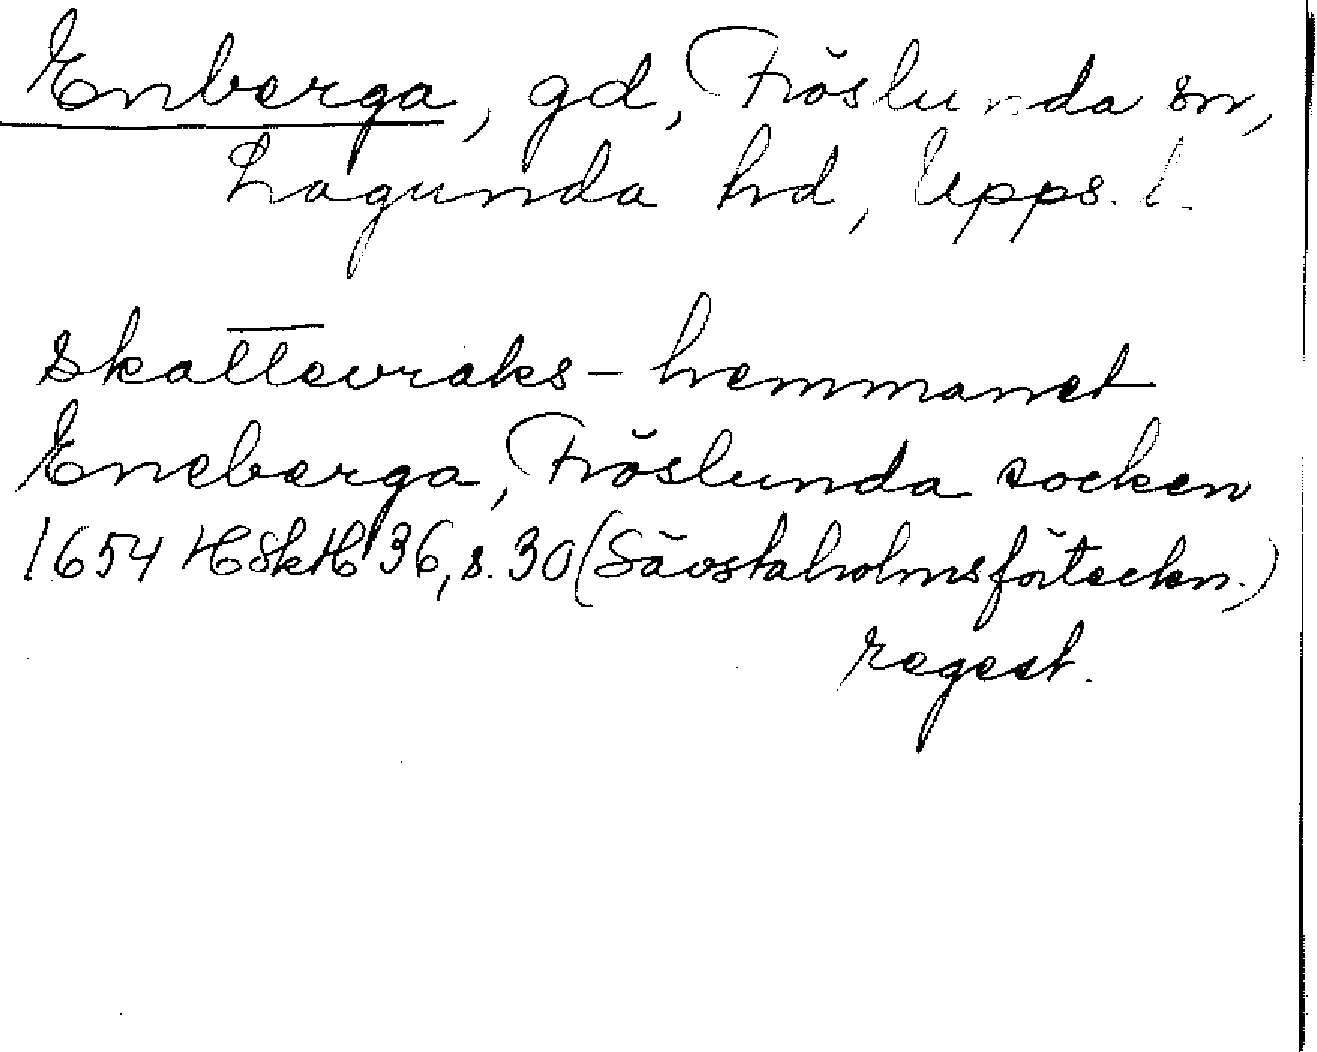 Enberga, gd, Fröslunda sn,
Lagunda hd, Upps. l.
Skattevraks-hemmanet
Eneberga, Fröslunda socken
1654 HSkH 36, s. 30 (Sävstaholmsförteckn.)
regest.